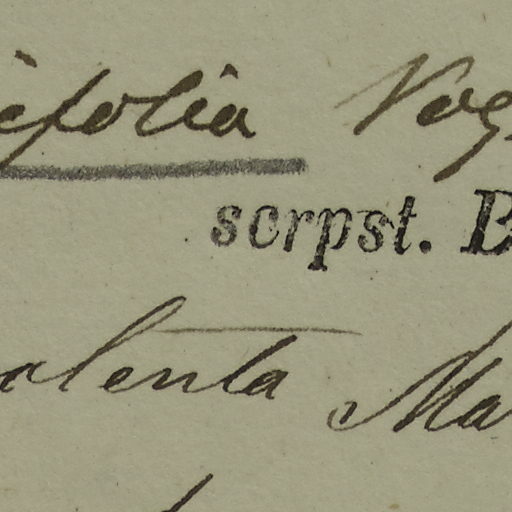 icfolia Vog
scrpst. B
alenta Ma